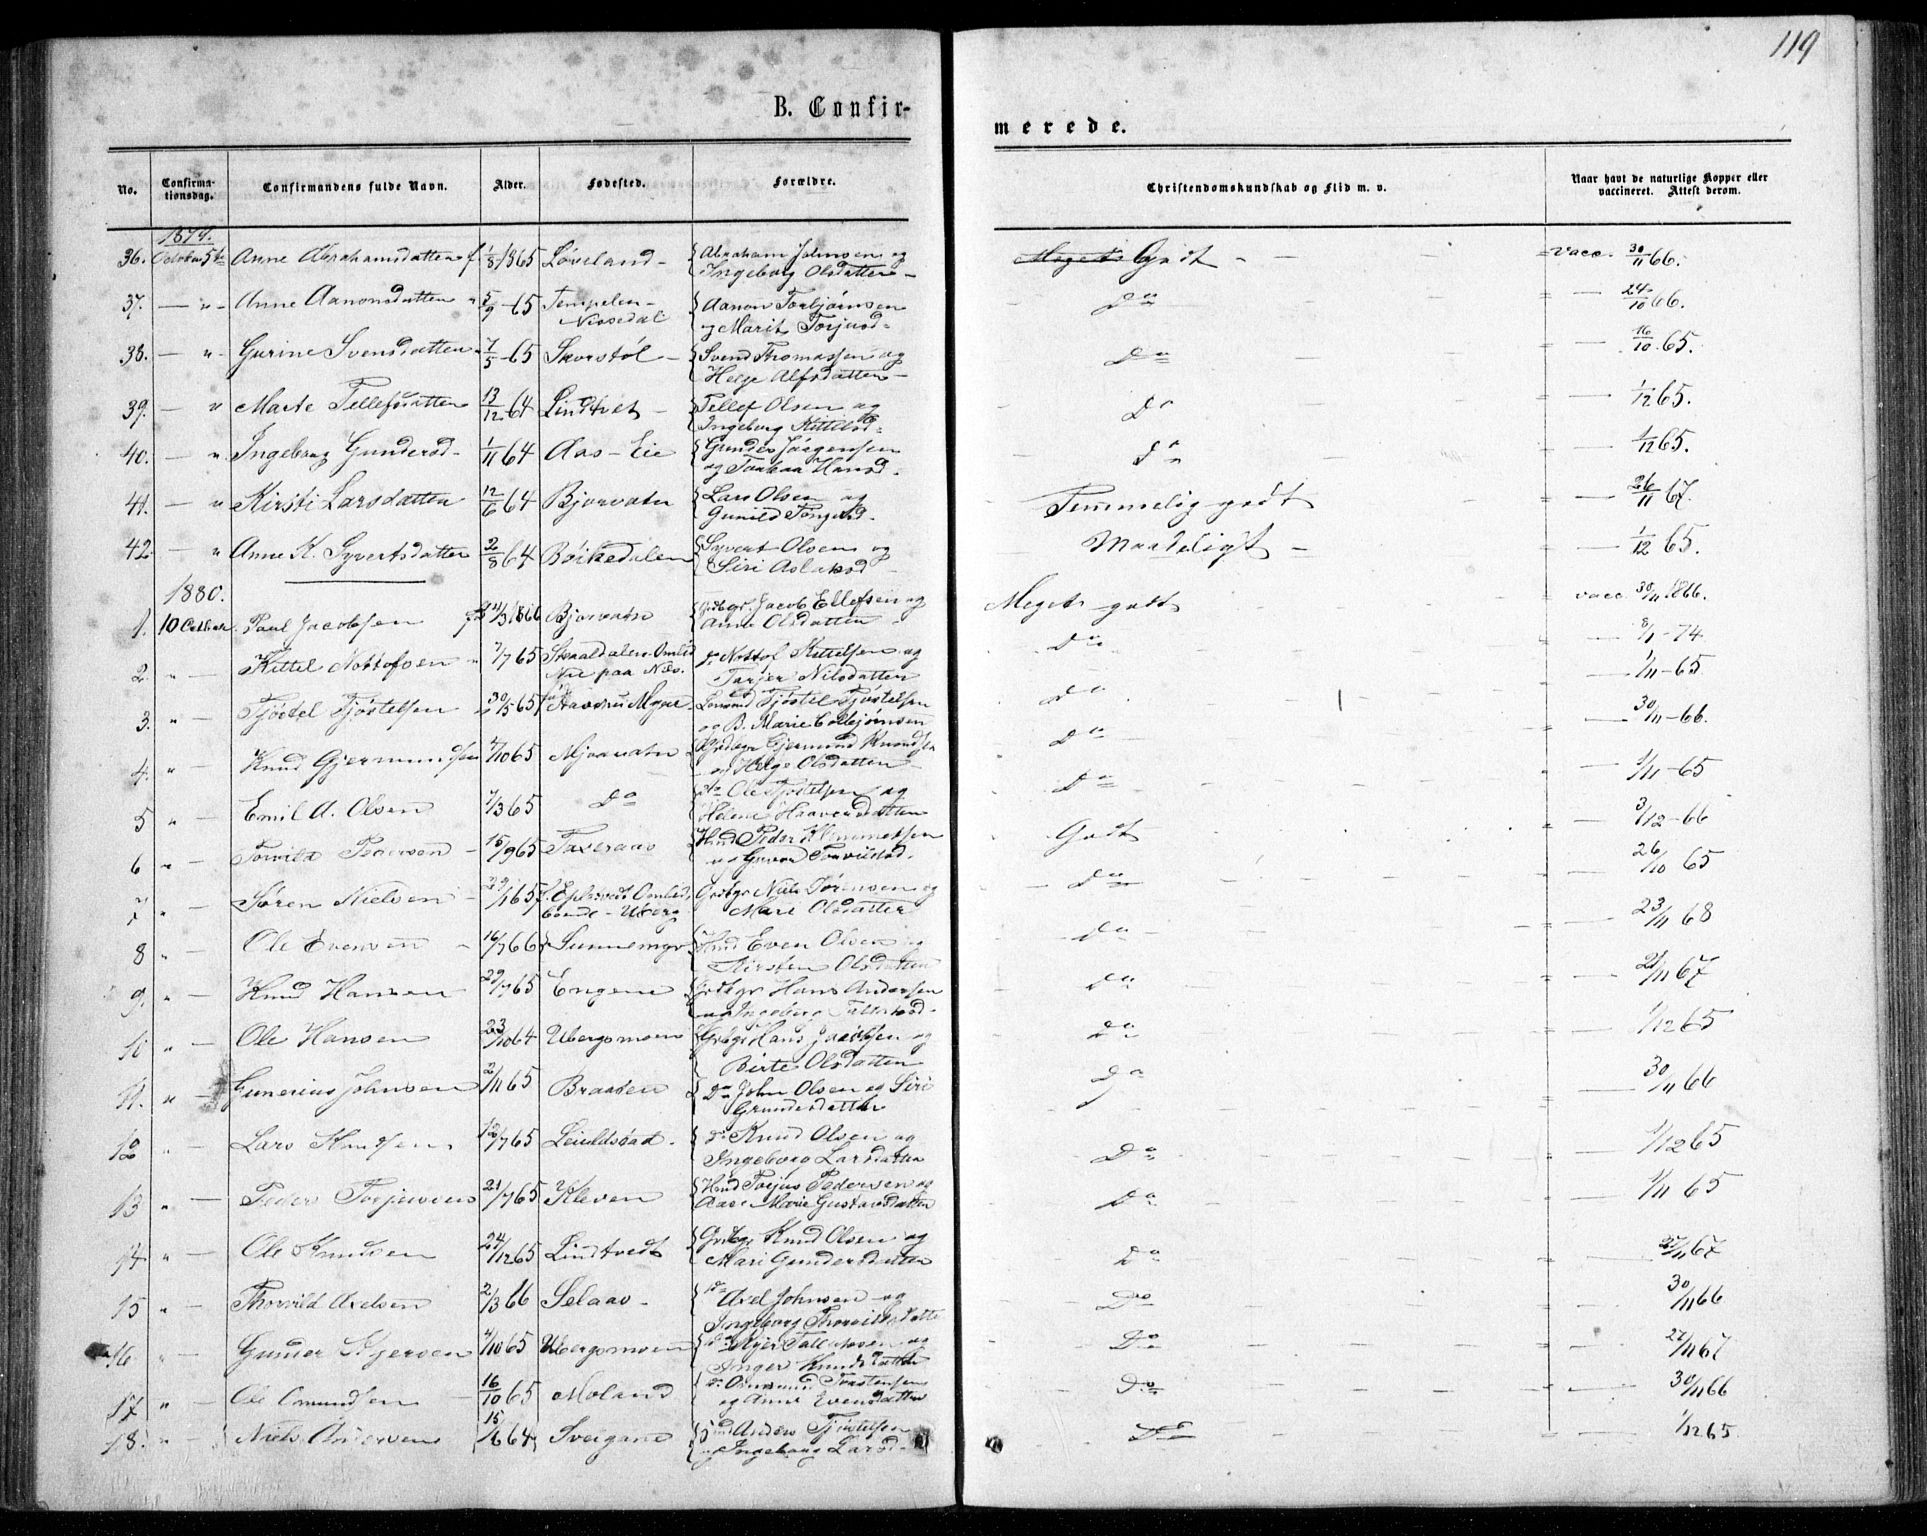 119
B. Confirmerede.
No. Confirmationsdag. Confirmandens fulde Navn. Alder. Fødested. Forældre. Christendomskundskab og Flid m. v. Naar havt de naturlige Kopper eller vaccineret. Attest derom.
1879.
36. October 5te Anne Abrahamsdatter f. 1/8 1865 Løveland - Abraham Johnsen og Ingeborg Olsdatter - Godt - vacc. 30/11 66.
37. — " - Anne Aanonsdatter " 5/9 - 65 Tempelen - Nissedal Aanon Torbjørnsen og Marit Torjusd= Do — 24/10 66.
38. — " - Gurine Svensdatter " 7/5 - 65 Skorstøl - Svend Thomassen og Helge Alfsdatter - Do — 16/10 65.
39. — " Marte Tellefsdatter 13/12 64 Lindtvet - Tellef Olsen og Ingeborg Kittelsd= Do — 1/12 65.
40. — " Ingeborg Gundersd - 1/11 64 Aas - Eie Gunder Jørgensen og Taabaa Hansd. Do — 1/12 65.
41. — " Kirsti Larsdatter 12/6 64 Bjorvatn Lars Olsen og Gunild Tongesd. Temmelig godt — 26/11 67.
42 — " Anne K. Syvertsdatter 2/8 64 Bøikedalen Syvert Olsen og Siri Aslaksd Maadeligt - — 1/12 65.
1880.
1. 10 October Paul Jacobsen 1866 Bjorvatn Grdbgr. Jacob Ellefsen og Anne Olsdatter Meget godt vacc. 30/11 1866.
2 " — Kittel Nottofsen " 7/7 65 Omlid Nie paa Næs. Nottof Kittelsen og Tarjer Nilsdatter Do — 8/1 - 74
3. " — Tjøstel Tjøstelsen " 30/5 65 Myar Tjøstel Tjøstelsen og B. Marie Do — 1/11 - 65
4. " — Knud Gjermundsen 4/10 65 Mjaavatn Gjermund Knudsen og Helge Olsdatter Do — 30/11 - 66.
5 " — Emil A. Olsen 7/3 65 Do Do Ole Tjøstelsen og Helene Haavorsdatter Do — 1/11 - 65
6 " — Torvild Pedersen - 15/9 65 Taxeraas Hmd Peder Klemmetsen og Gurør Torvildsd. Godt — 3/12 - 66
7 " — Søren Nielsen - 29/1 65 f. Omlid, boende - Uberg Grdbgr Niels Sørensen og Mari Olsdatter Do — 26/10 65
8 " — Ole Evensen - 16/7 66 Sunnemyr Hmd Even Olsen og Kirsten Olsdatter Do — 23/11 68
9. " — Knud Hansen - 29/7 65 Engene Grdbgr Hans Andersen og Ingeborg Do — 21/11 67
10 " — Ole Hansen 23/10 64 Ubergsmoen Grdbgr Hans Jacobsen og Birte Olsdatter Do — 1/12 65
11. " — Gunerius Johnsen 2/11 65 Braaten Do John Olsen og Siri Gundersdatter Do — 30/11 66
12 " Lars Knudsen 12/7 65 Leiuldstad. do Knud Olsen og Ingeborg Larsdatter Do — 1/12 65
13 " — Peder Torjussen 21/7 65 Kleven Hmd Torjus Pedersen og Aase Marie Gustavsdatter Do — 1/11 65
14 " — Ole Knudsen 24/12 65 Lindtvedt Grdbgr Knud Olsen og Mari Gundersdatter Do 27/11 67
15 " — Thorvild Axelsen 2/3 66 Selaas - do Axel Johnsen og Ingeborg Thorvildsdatter Do 30/11 66
16 " — Gunder Kjersen 4/10 65 Ubergsmoen do Kjer Tallaksen og Inger Knudsdatter Do 27/11 67
17 " — Ole Omundsen 16/10 65 Moland do Omund Torstensen og Anne Evensdatter Do 30/11 66
18. " Niels Andersen 15/6 64 Sveigane Hmd Anders Tjøstelsen og Ingeborg Larsd - Do 1/12 65